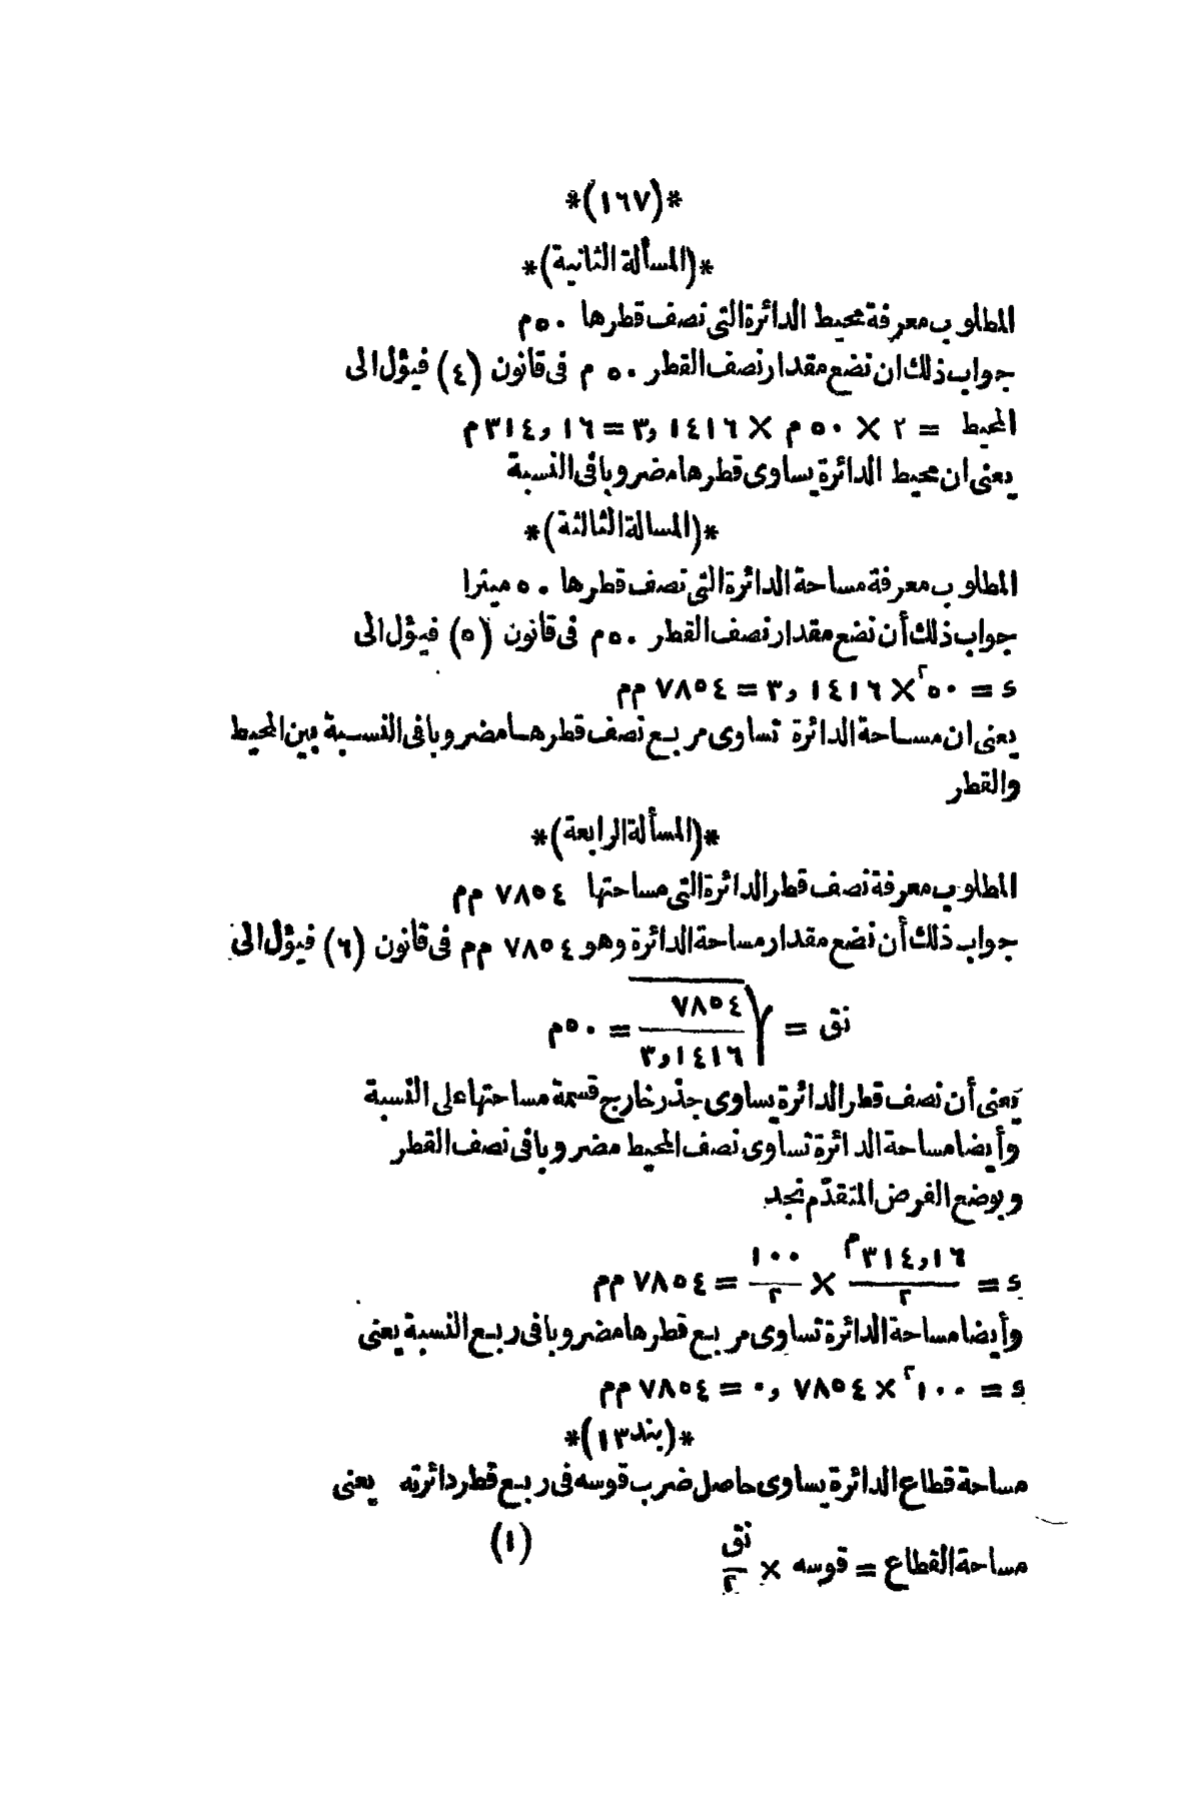 *(١٦٧)*
*(المسألة الثانية)*
المطلوب معرفة محيط الدائرة التى نصف قطرها ٥٠م
جواب ذلك ان نضع مقدار نصف القطر ٥٠ م فى قانون (٤) فيؤل الى
المحيط = ٢ × ٥٠ م × ٣,١٤١٦ = ٣١٤,١٦ م
يعنى ان محيط الدائرة يساوى قطرها مضروبا فى النسبة
*(المسالة الثالثة)*
المطلوب معرفة مساحة الدائرة التى نصف قطرها ٥٠ ميترا
جواب ذلك أن نضع مقدار نصف القطر ٥٠م فى قانون (٥) فيؤل الى
ء = ٥٠² × ٣,١٤١٦ = ٧٨٥٤ م م
يعنى ان مساحة الدائرة تساوى مربع نصف قطرها مضروبا فى النسبة بين المحيط
والقطر
*(المسألة الرابعة)*
المطلوب معرفة نصف قطر الدائرة التى مساحتها ٧٨٥٤ م م
جواب ذلك أن نضع مقدار مساحة الدائرة وهو ٧٨٥٤ م م فى قانون (٦) فيؤل الى
نق = √(٧٨٥٤ / ٣,١٤١٦) = ٥٠م
يعنى أن نصف قطر الدائرة يساوى جذر خارج قسمة مساحتها على النسبة
وأيضا مساحة الدائرة تساوى نصف المحيط مضروبا فى نصف القطر
وبوضع الفرض المتقدّم نجد
ء = ٣١٤,١٦م / ٢ × ١٠٠ / ٢ = ٧٨٥٤ م م
وأيضا مساحة الدائرة تساوى مربع قطرها مضروبا فى ربع النسبة يعنى
ء = ١٠٠² × ٠,٧٨٥٤ = ٧٨٥٤ م م
*(بند ١٣)*
مساحة قطاع الدائرة يساوى حاصل ضرب قوسه فى ربع قطر دائرته يعنى
مساحة القطاع = قوسه × نق / ٢ (١)